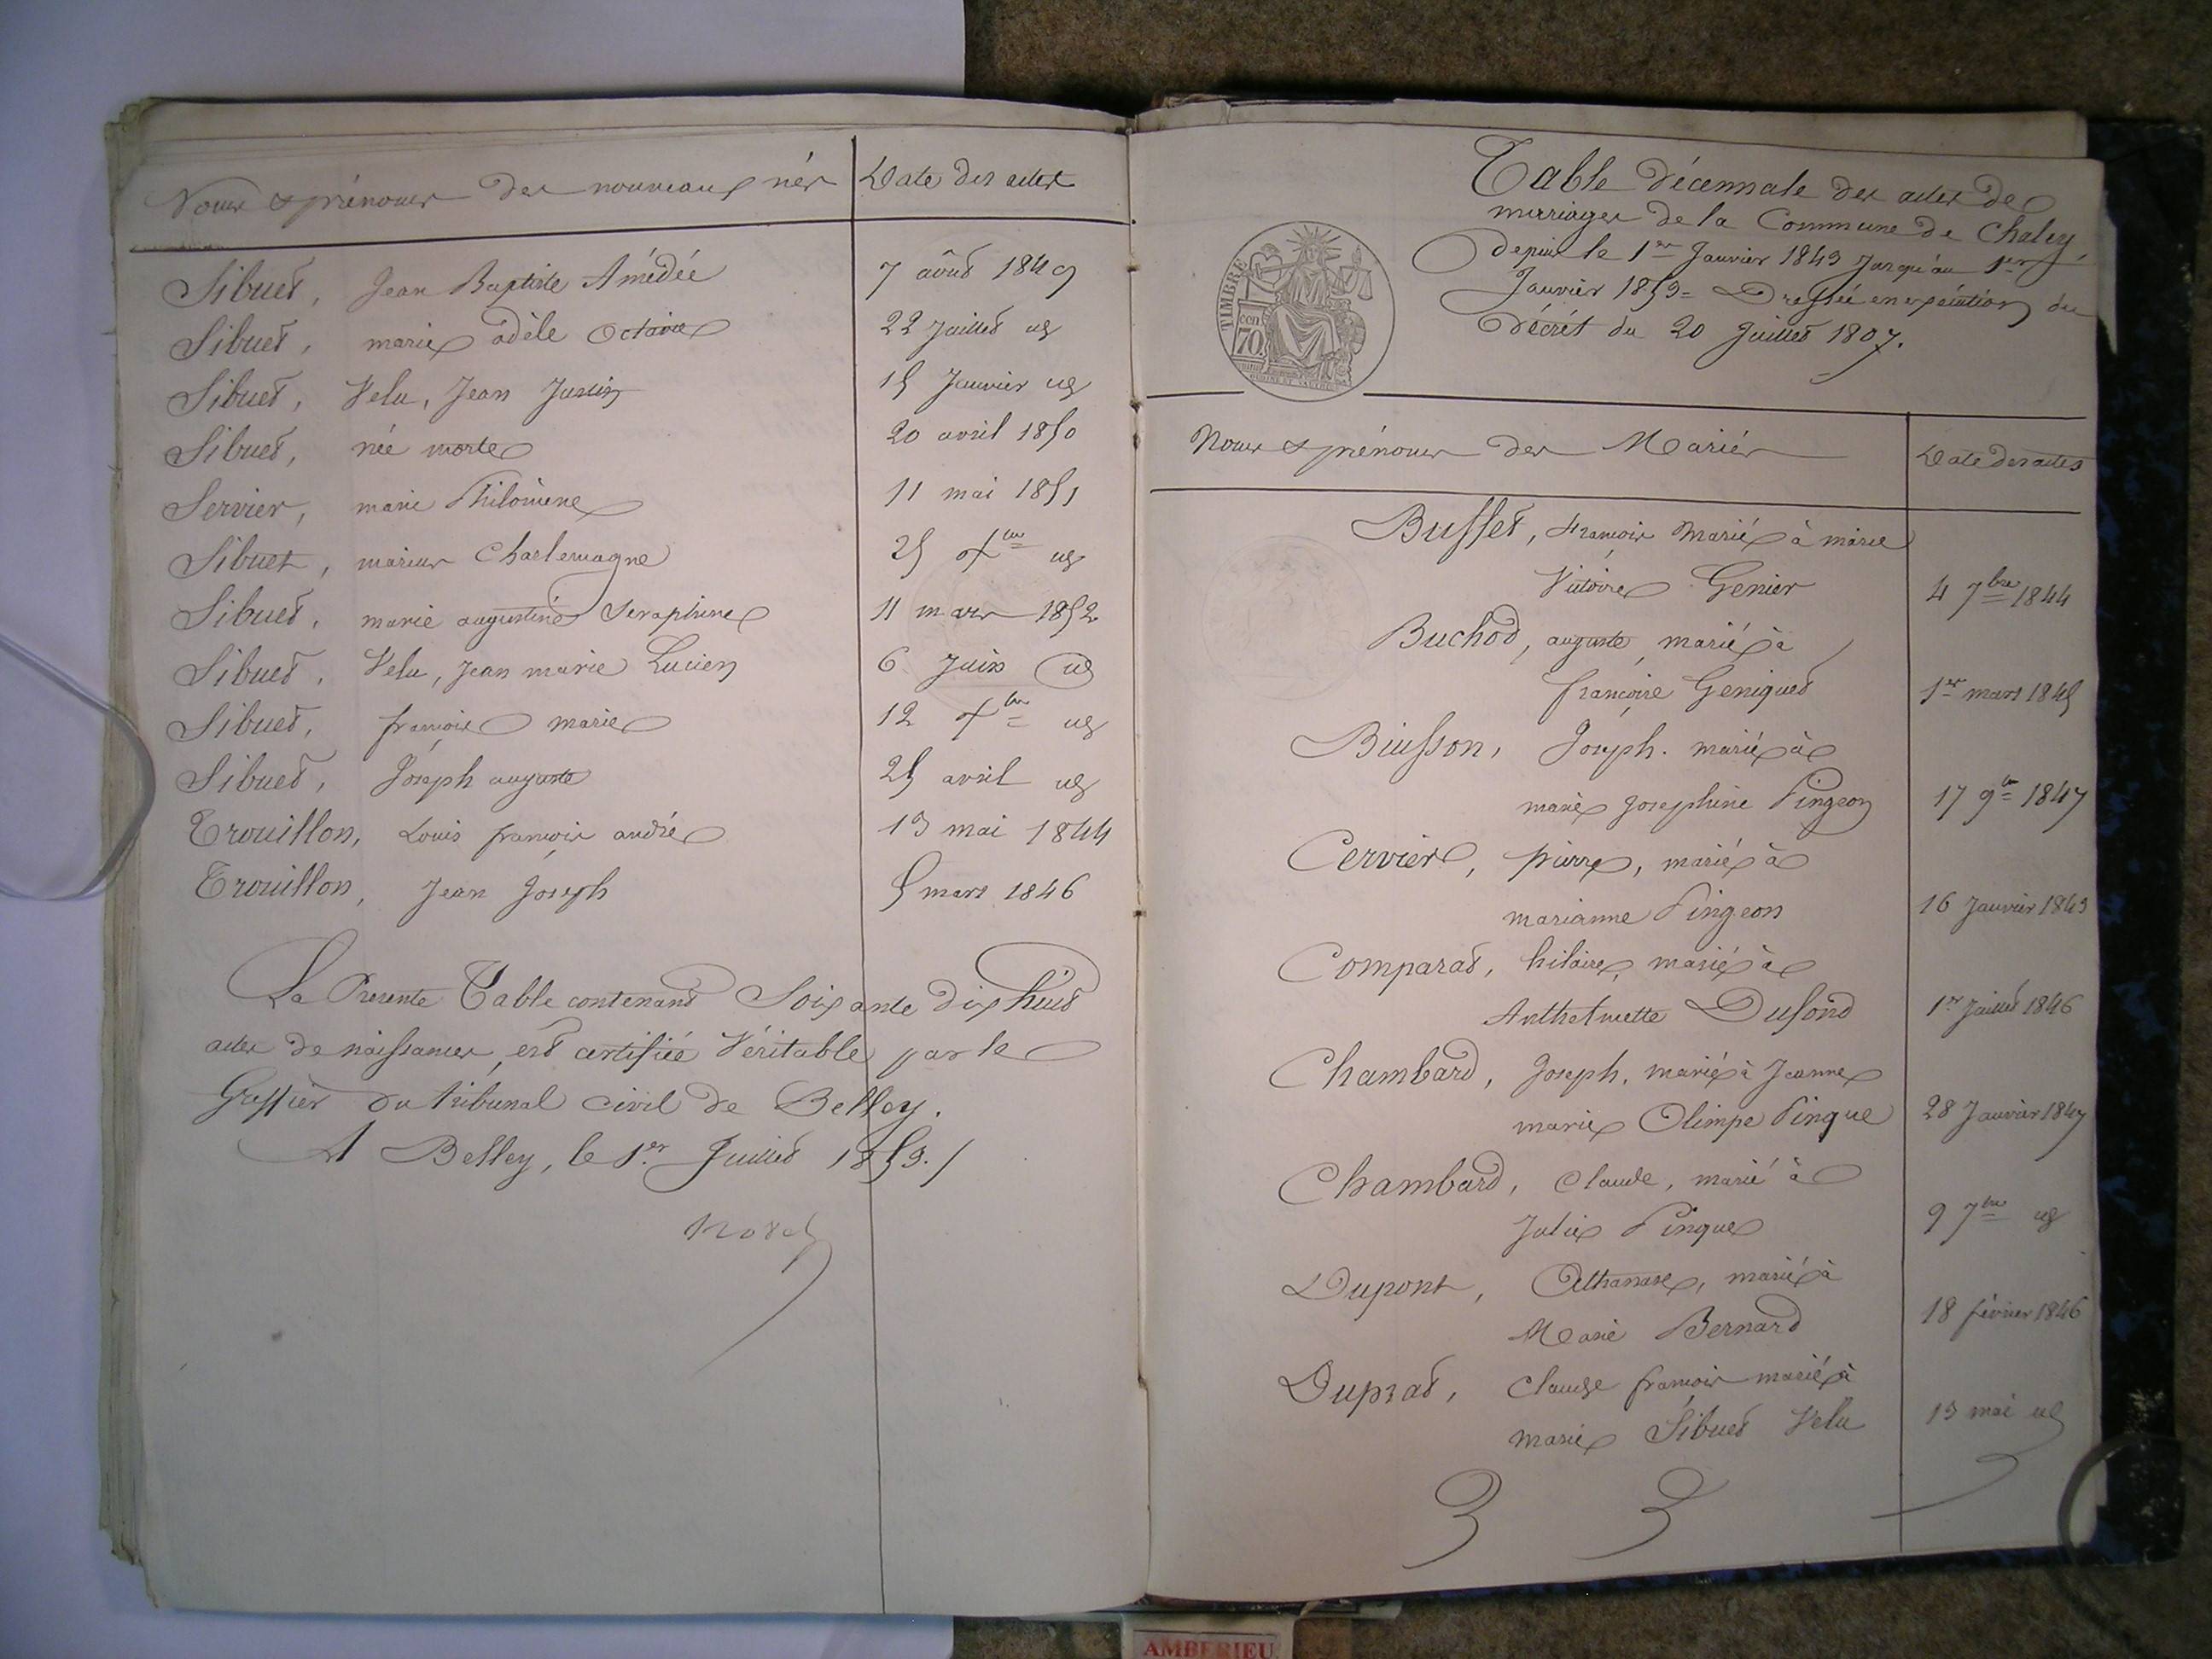 Noms & prénoms des nouveaux nés Date des actes
Sibuet, Jean Baptiste Amédée 7 août 1849
Sibuet, marie adèle Octavie 22 Juillet
Sibuet, Velu, Jean Justin 15 Janvier
Sibuet, née morte 20 avril 1850
Servier, marie Philomène 11 mai 1851
Sibuet, marius Charlemagne 25
Sibuet, marie augustine Seraphine 11 mars 1852
Sibuet, Velu, Jean marie Lucien 6 Juin
Sibuet, françois marie 12
Sibuet, Joseph auguste 25 avril
Trouillon, Louis françois andré 13 mai 1844
Trouillon, Jean Joseph 5 mars 1846
La Présente Table contenant Soixante dix huit
actes de naissances, est certifiée Véritable par le
Greffier du tribunal civil de Belley.
A Belley, le 1er Juillet 1853.
Table décennale des actes de
mariages de la Commune de Chaley
depuis le 1er Janvier 1843 Jusqu'au 1er
Janvier 1853 = Dressée en exécution du
Décrét du 20 Juillet 1807.
TIMBRE
70
Noms & prénoms des Mariés Date des actes
Busset, François Marié à marie
Victoire Genier 4 7bre 1844
Buchod, auguste, marié à
françoise Geniquet 1er mars 1845
Buisson, Joseph. marié à
marie Josephine Pingeon 17 9bre 1847
Cervier, pierre, marié à
marianne Pingeon 16 Janvier 1843
Comparat, hilaire, marié à
Anthelmette Dufond 1er Juillet 1846
Chambard, Joseph, marié à Jeanne
marie Olimpe Pingue 28 Janvier 1847
Chambard, Claude, marié à
Julie Pingue 9 7bre
Dupont, Athanase, marié à
Marie Bernard 18 février 1846
Duprat, Claude françois marié à
marie Sibuet Velu 13 mai
AMBERIEU